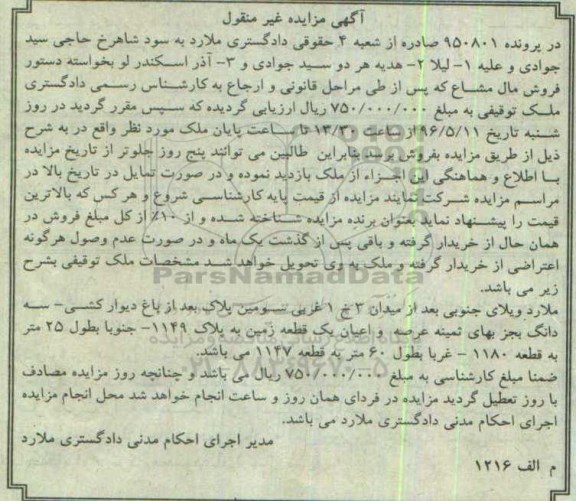 آگهی مزایده غیر منقول
در پرونده ۹۵۰۸۰۱ صادره از شعبه ۴ حقوقی دادگستری ملارد به سود شاهرخ حاجی سید
جوادی و علیه ۱- لیلا ۲- هدیه هر دو سید جوادی و ۳- آذر اسکندر لو بخواسته دستور
فروش مال مشاع که پس از طی مراحل قانونی و ارجاع به کارشناس رسمی دادگستری
ملک توقیفی به مبلغ ۷۵۰/۰۰۰/۰۰۰ ریال ارزیابی گردیده که سپس مقرر گردید در روز
شنبه تاریخ ۹۶/۵/۱۱ از ساعت ۱۳/۳۰ تا ساعت پایان ملک مورد نظر واقع در به شرح
ذیل از طریق مزایده بفروش برسد بنابراین طالبین می توانند پنج روز جلوتر از تاریخ مزایده
با اطلاع و هماهنگی این اجراء از ملک بازدید نموده و در صورت تمایل در تاریخ بالا در
مراسم مزایده شرکت نمایند مزایده از قیمت پایه کارشناسی شروع و هر کس که بالاترین
قیمت را پیشنهاد نماید بعنوان برنده مزایده شناخته شده و از ۱۰٪ از کل مبلغ فروش در
همان حال از خریدار گرفته و باقی پس از گذشت یک ماه و در صورت عدم وصول هرگونه
اعتراضی از خریدار گرفته و ملک به وی تحویل خواهد شد مشخصات ملک توقیفی بشرح
زیر می باشد.
ParsNamadData
ملارد ویلای جنوبی بعد از میدان ۳ خ ۱ غربی سومین پلاک بعد از باغ دیوار کشی- سه
دانگ بجز بهای ثمینه عرصه و اعیان یک قطعه زمین به پلاک ۱۱۴۹- جنوبا بطول ۲۵ متر
به قطعه ۱۱۸۰ - غربا بطول ۶۰ متر به قطعه ۱۱۴۷ می باشد.
ضمنا مبلغ کارشناسی به مبلغ ۷۵۰/۰۰۰/۰۰۰ ریال می باشد و چنانچه روز مزایده مصادف
با روز تعطیل گردید مزایده در فردای همان روز و ساعت انجام خواهد شد محل انجام مزایده
اجرای احکام مدنی دادگستری ملارد می باشد.
مدیر اجرای احکام مدنی دادگستری ملارد
م الف ۱۲۱۶